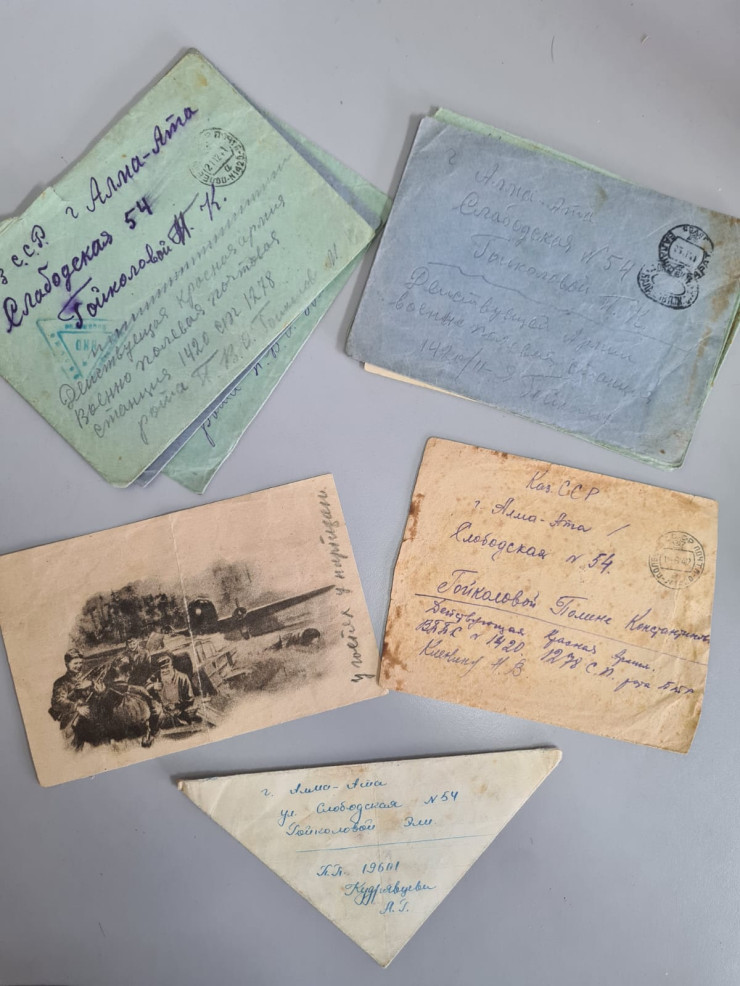 з С.С.Р. г Алма-Ата
Слабодская 54
Гойколовой П. К.
Действующая Красная армия
Военно полевая почтовая
станция 1420 ст 1278
рота П В.О.
г Алма-Ата
Слабодская N 54
Гойколовой П К
Действующей Армии
военно полевая станция
у гостей у партизан
Каз.ССР
г. Алма-Ата /
Слободская N 54.
Гойколовой Полине
Действующая Красная Армия.
ВППС N 1420 1278 С.П. рота
г. Алма-Ата
ул Слободская N 54
Гойколовой Эли
П.П. 19601
Кудрявцева
Л.Г.